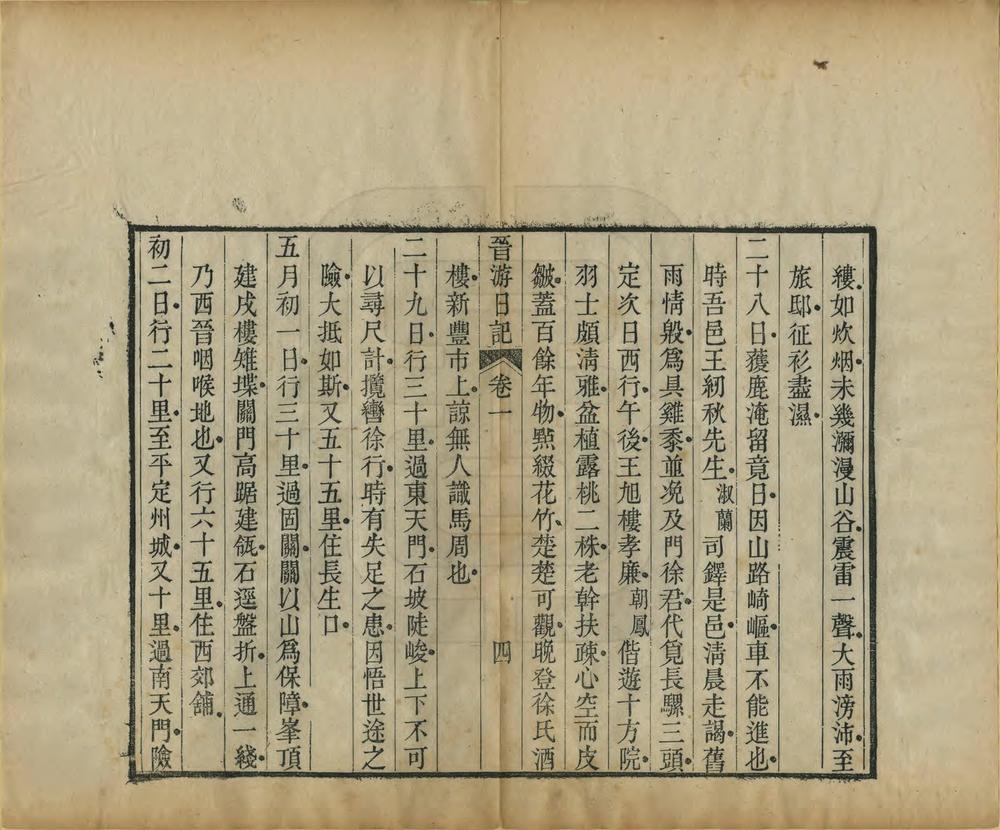 縷如炊烟未幾瀰漫山谷震雷一聲大雨滂沛至
旅邸征衫盡濕
二十八日獲鹿淹留竟日因山路崎嶇車不能進也
時吾邑王紉秋先生淑蘭司鐸是邑淸晨走謁舊
雨情殷爲具雞黍並浼及門徐君代筧長騾三頭
定次日西行午後王旭樓孝廉朝鳳偕遊十方院
羽士頗淸雅盆植露桃二株老幹扶疎心空而皮
皺蓋百餘年物點綴花竹楚楚可觀晚登徐氏酒
晉游日記 卷一 四
樓新豐市上諒無人識馬周也
二十九日行三十里過東天門石坡陡峻上下不可
以尋尺計攬轡徐行時有失足之患因悟世途之
險大抵如斯又五十五里住長生口
五月初一日行三十里過固關關以山爲保障峯頂
建戍樓雉堞關門高踞建瓴石逕盤折上通一綫
乃西晉咽喉地也又行六十五里住西郊舖
初二日行二十里至平定州城又十里過南天門險